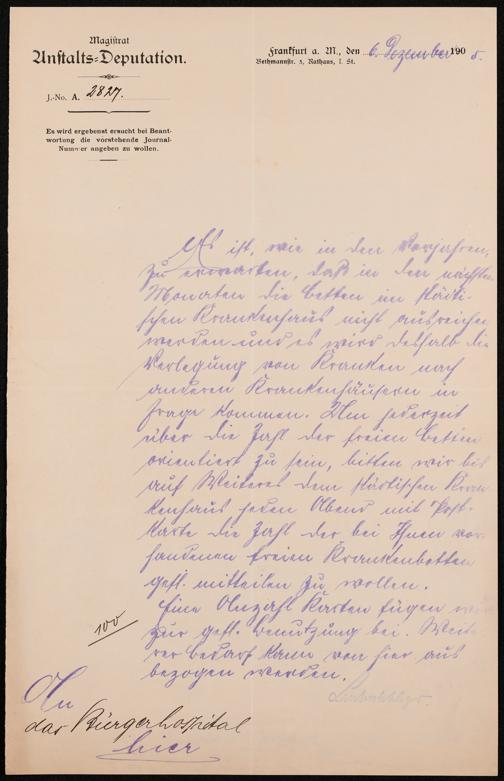 Magistrat
Anstalts-Deputation.
J.-No. A. 2827.
Es wird ergebenst ersucht bei Beant-
wortung die vorstehende Journal-
Nummer angeben zu wollen.
Frankfurt a. M., den 6. Dezember 190 5.
Bethmannstr. 3, Rathaus, I. St.
Es ist, wie in den Vorjahren,
zu erwarten, daß in den nächsten
Monaten die Betten im städti-
schen Krankenhaus nicht ausreichen
werden und es wird deshalb die
Verlegung von Kranken nach
anderen Krankenhäusern in
Frage kommen. Um jederzeit
über die Zahl der freien Betten
orientiert zu sein, bitten wir bis
auf Weiteres dem städtischen Kran
kenhaus jeden Abend mit Post-
karte die Zahl der bei Ihnen vor
handenen freien Krankenbetten
gefl. mitteilen zu wollen.
Eine Anzahl Karten fügen wir
zur gefl. Benutzung bei. Weite
rer Bedarf kann von hier aus
bezogen werden.
100
An
das Bürgerhospital
hier